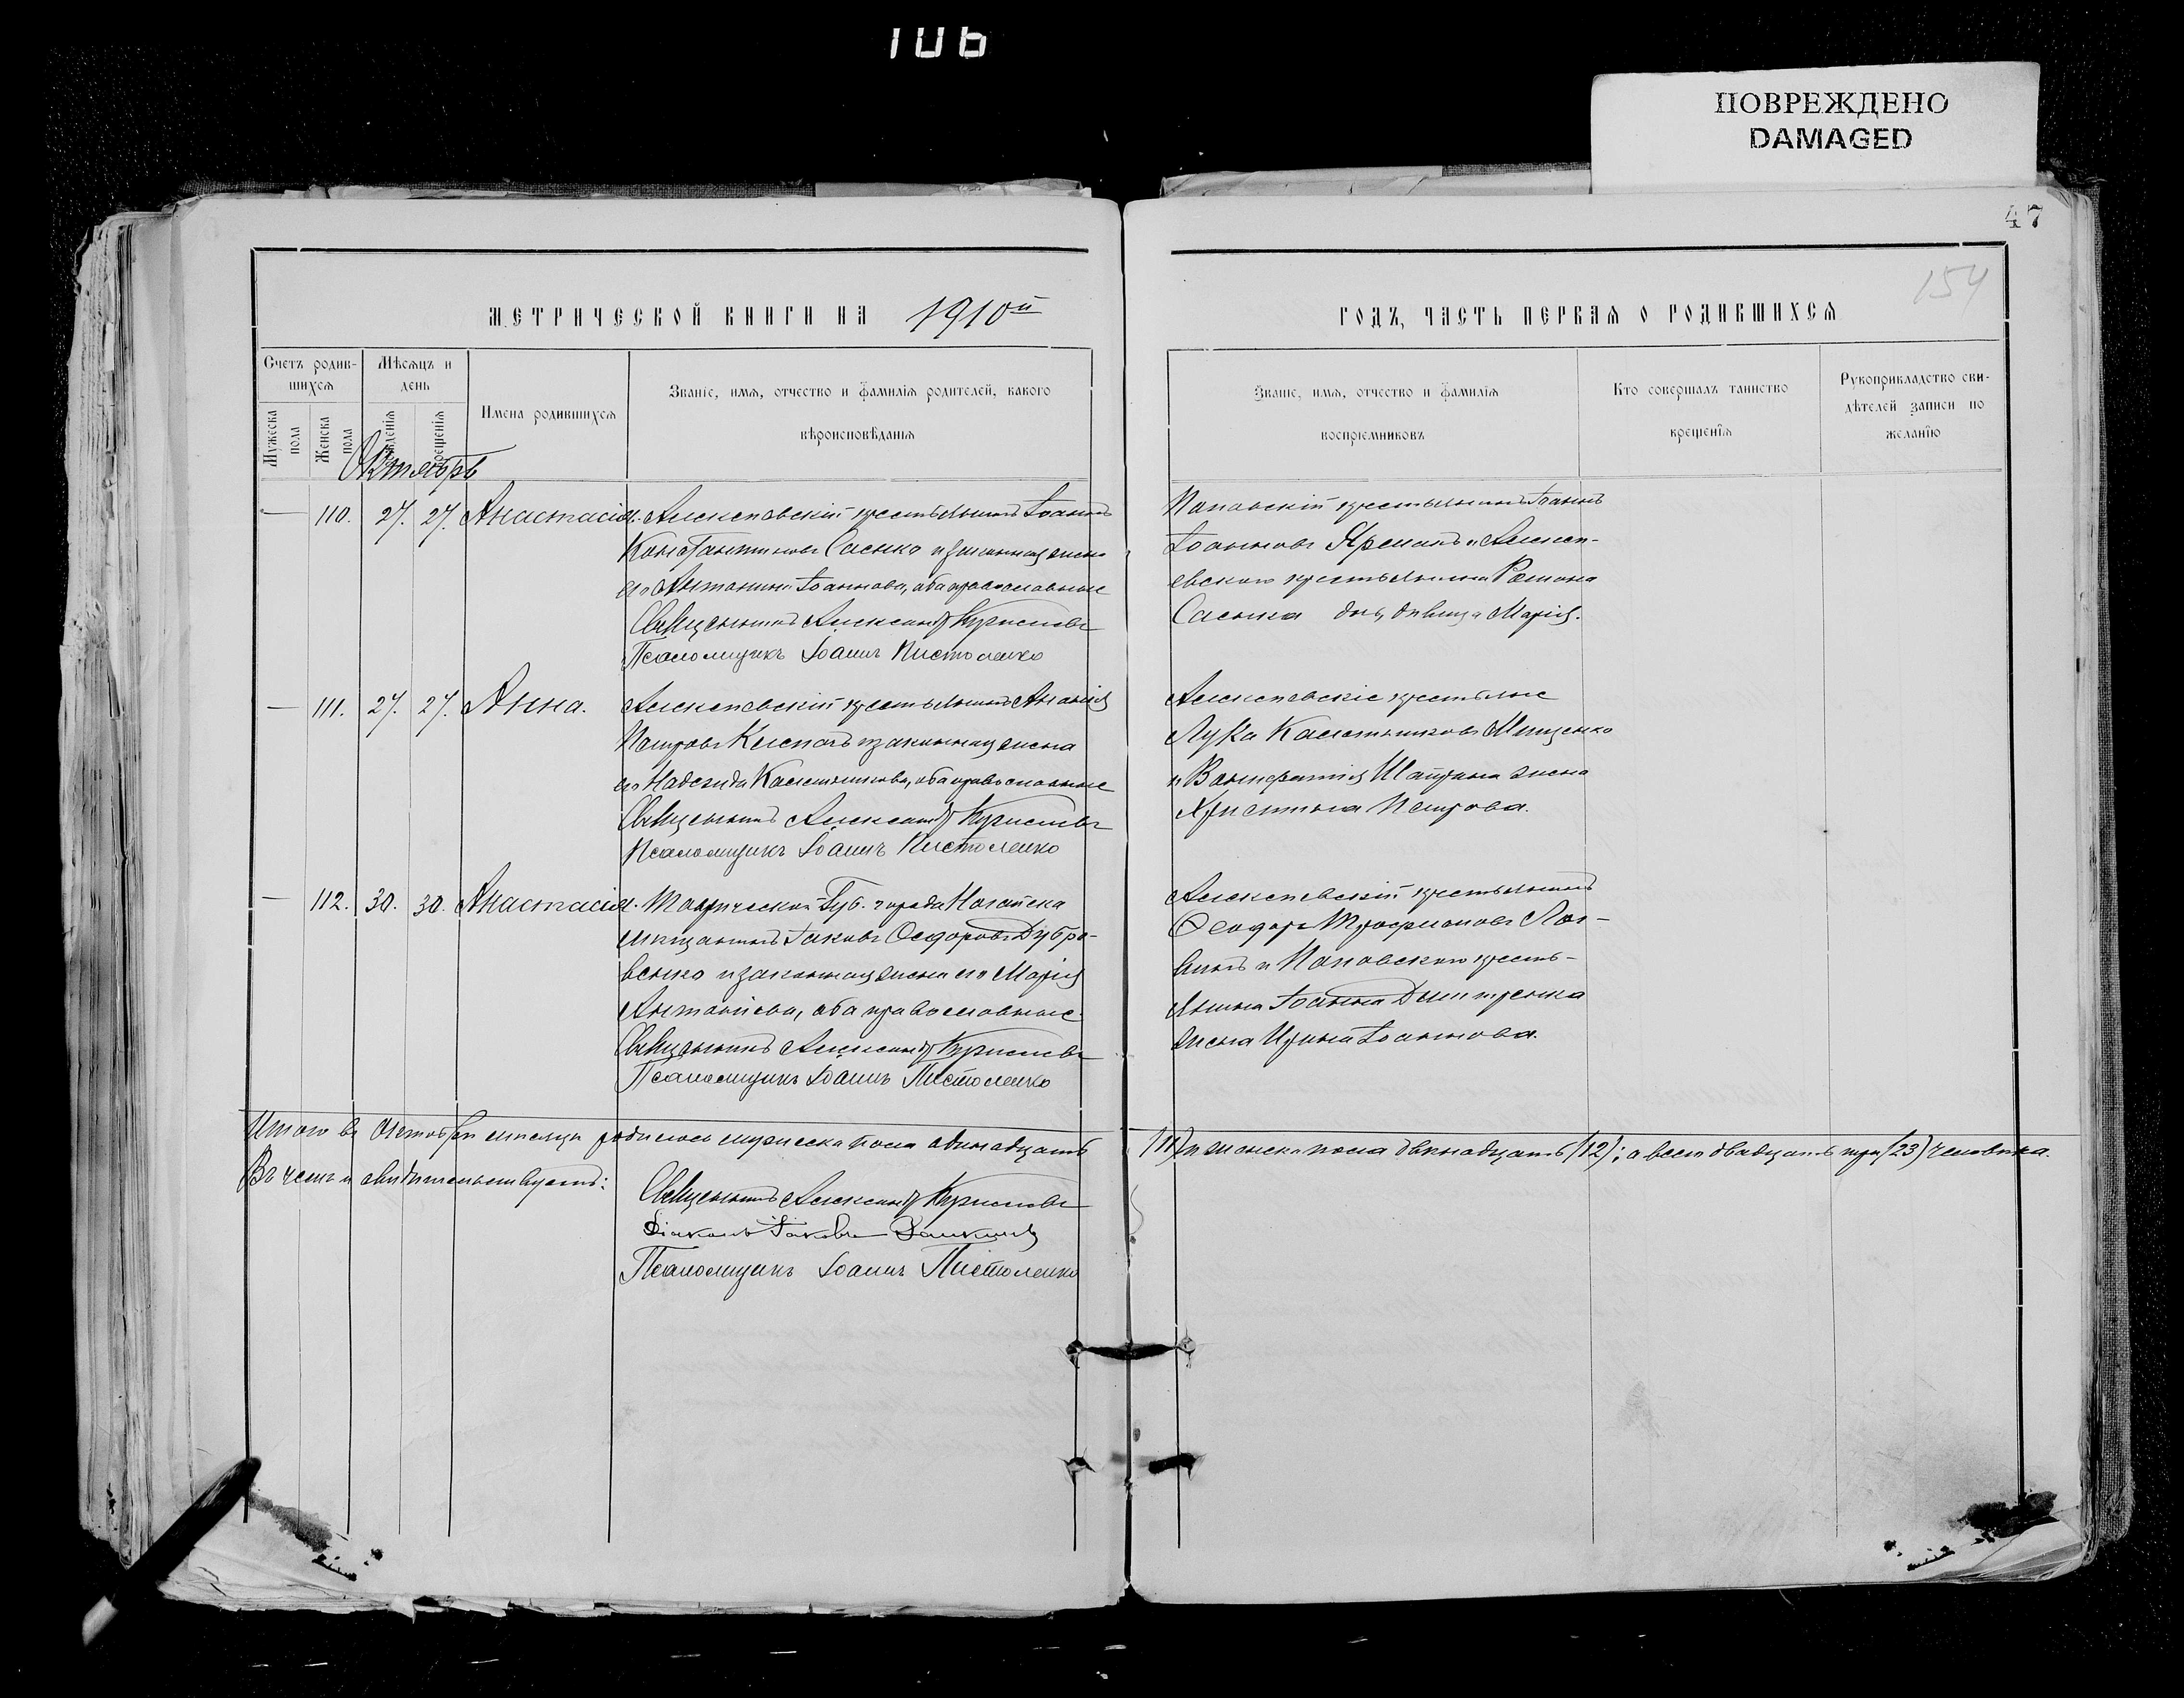 106
ПОВРЕЖДЕНО
DAMAGED
47
154
МЕТРИЧЕСКОЙ КНИГИ НА 1910й
ГОДЪ, ЧАСТЬ ПЕРВАЯ О РОДИВШИХСЯ
Счетъ родив-
шихся
Мужеска пола
Женска пола
Мѣсяцъ и
день
рожденія
крещенія
Имена родившихся
Званіе, имя, отчество и фамилія родителей, какого
вѣроисповѣданія
Званіе, имя, отчество и фамилія
воспріемниковъ
Кто совершалъ таинство
крещенія
Рукоприкладство сви-
дѣтелей записи по
желанію
Октябрь
— 110. 27. 27. Анастасія. Алексѣевскій крестьянинъ Іоаннъ
Константиновъ Сасько и законная жена
его Антонина Іоаннова, оба православные
Священникъ Александръ
Псаломщикъ Іоаннъ Пистоленко
Поповскій крестьянинъ Іоаннъ
Іоанновъ Яременъ и Алексѣ-
евскаго крестьянина Романа
Саська дочь, дѣвица Марія.
— 111. 27. 27. Анна. Алексѣевскій крестьянинъ Ананія
Петровъ и законная жена
его Надежда Каллиникова, оба православные
Священникъ Александръ
Псаломщикъ Іоаннъ Пистоленко
Алексѣевскіе крестьяне
Лука Каллиниковъ Мищенко
и Вонифатія жена
Христина Петрова.
— 112. 30. 30. Анастасія. Таврической Губ. города Ногайска
мѣщанинъ Іаковъ Ѳеодоровъ Дубро-
венко и законная жена его Марія
Антоніева, оба православные
Священникъ Александръ
Псаломщикъ Іоаннъ Пистоленко
Алексѣевскій крестьянинъ
Ѳеодоръ Трофимовъ Лог-
винъ и Поповскаго кресть-
янина Іоанна Дмитренка
жена Ирина Іоаннова.
Итого въ Октябрѣ мѣсяцѣ родилось мужеска пола одинадцать (11) и женска пола двѣнадцать (12); а всего двадцать три (23) человѣка.
Въ чемъ и свидѣтельствуемъ:
Священникъ Александръ
Діаконъ Іаковъ
Псаломщикъ Іоаннъ Пистоленко